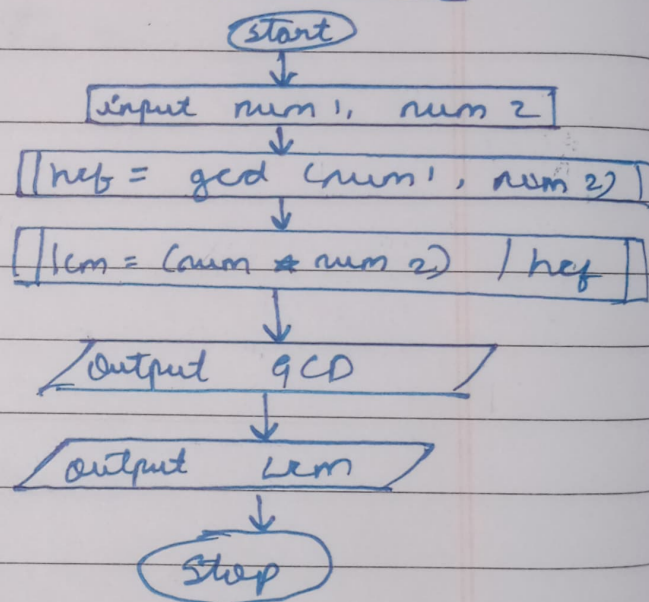 start
input num1, num 2
hcf = gcd (num1, num 2)
lcm = (num * num 2) / hcf
output GCD
output Lcm
Stop